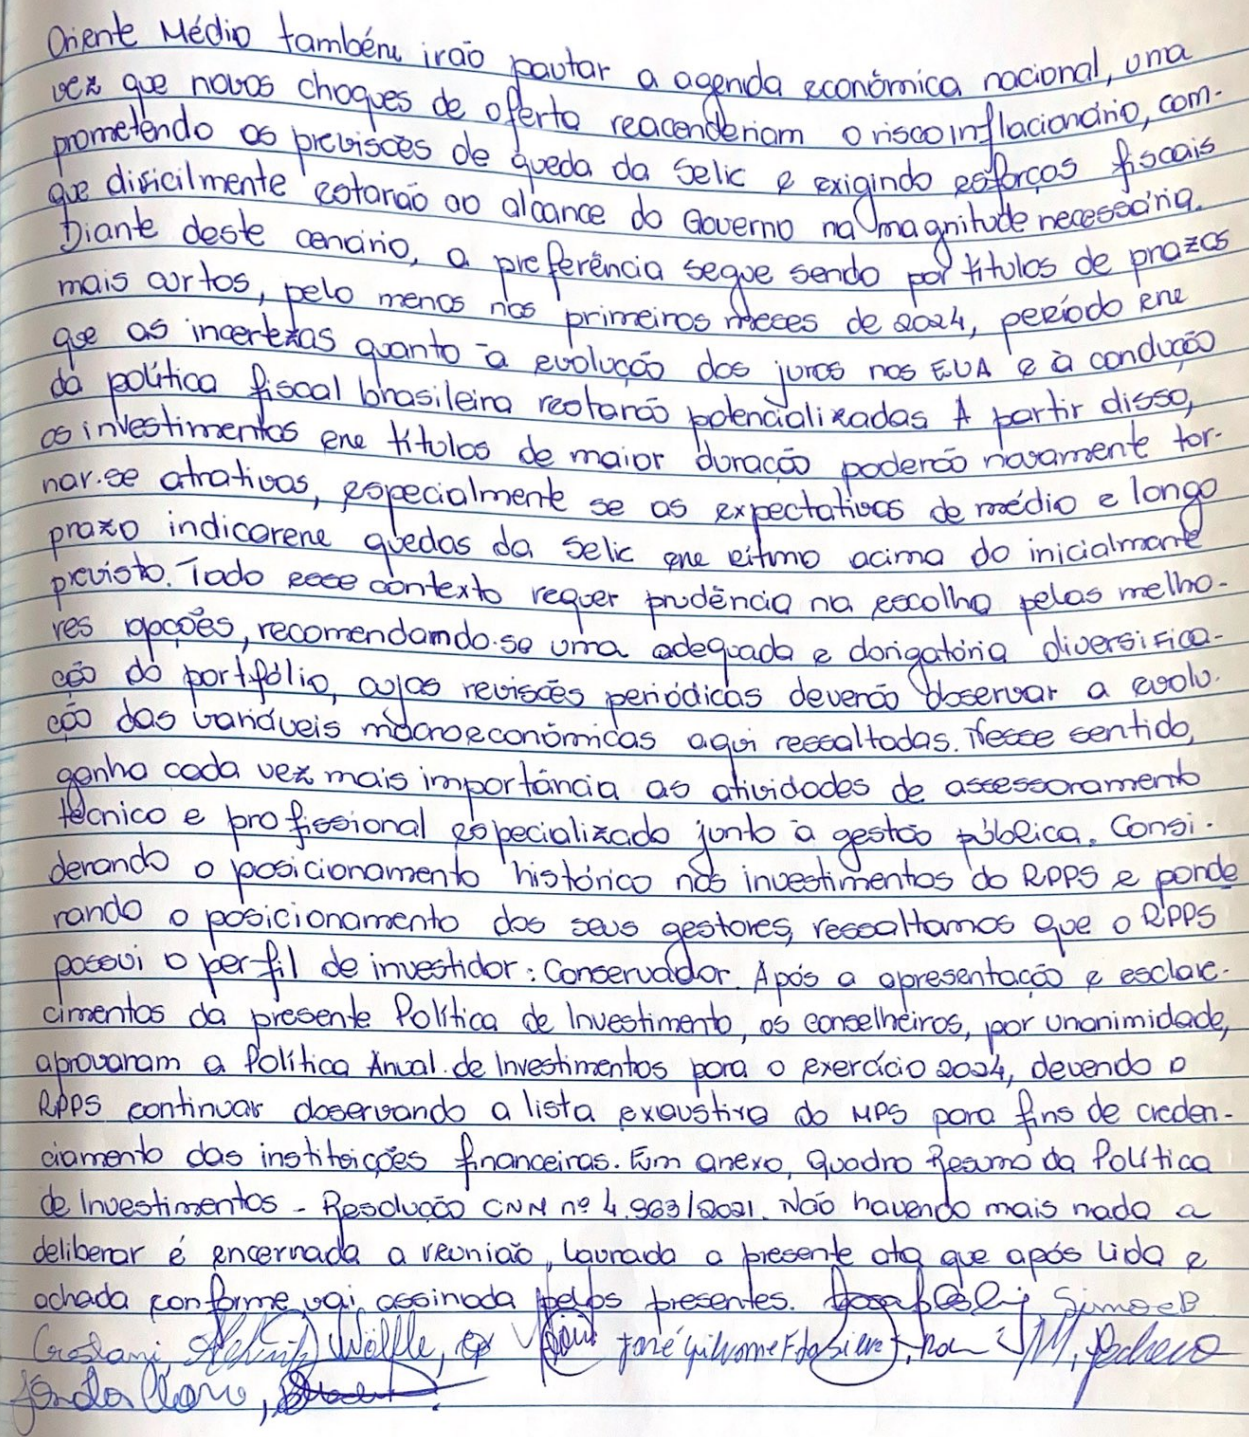 Oriente Médio também irão pautar a agenda econômica nacional, uma
vez que novos choques de oferta reacenderiam o risco inflacionário, com-
prometendo as previsões de queda da Selic e exigindo esforços fiscais
que dificilmente estarão ao alcance do Governo na magnitude necessária.
Diante deste cenário, a preferência segue sendo por títulos de prazos
mais curtos, pelo menos nos primeiros meses de 2024, período em
que as incertezas quanto à evolução dos juros nos EUA e à condução
da política fiscal brasileira restarão potencializadas A partir disso,
os investimentos em títulos de maior duração poderão novamente tor-
nar-se atrativos, especialmente se as expectativas de médio e longo
prazo indicarem quedas da Selic em ritmo acima do inicialmente
previsto. Todo esse contexto requer prudência na escolha pelas melho-
res opções, recomendando-se uma adequada e obrigatória diversifica-
ção do portfólio, cujas revisões periódicas deverão observar a evolu-
ção das variáveis macroeconômicas aqui ressaltadas. Nesse sentido,
ganha cada vez mais importância as atividades de assessoramento
técnico e profissional especializado junto à gestão pública. Consi-
derando o posicionamento histórico nos investimentos do RPPS e ponde
rando o posicionamento dos seus gestores, ressaltamos que o RPPS
possui o perfil de investidor: Conservador. Após a apresentação e esclare-
cimentos da presente Política de Investimento, os conselheiros, por unanimidade,
aprovaram a Política Anual de Investimentos para o exercício 2024, devendo o
RPPS continuar observando a lista exaustiva do MPS para fins de creden-
ciamento das instituições financeiras. Em anexo, Quadro Resumo da Política
de Investimentos - Resolução CNN nº 4.963/2021. Não havendo mais nada a
deliberar é encerrada a reunião, lavrada a presente ata que após lida e
achada conforme vai assinada pelos presentes. Simoe B
Wölfle, José M. Pacheco